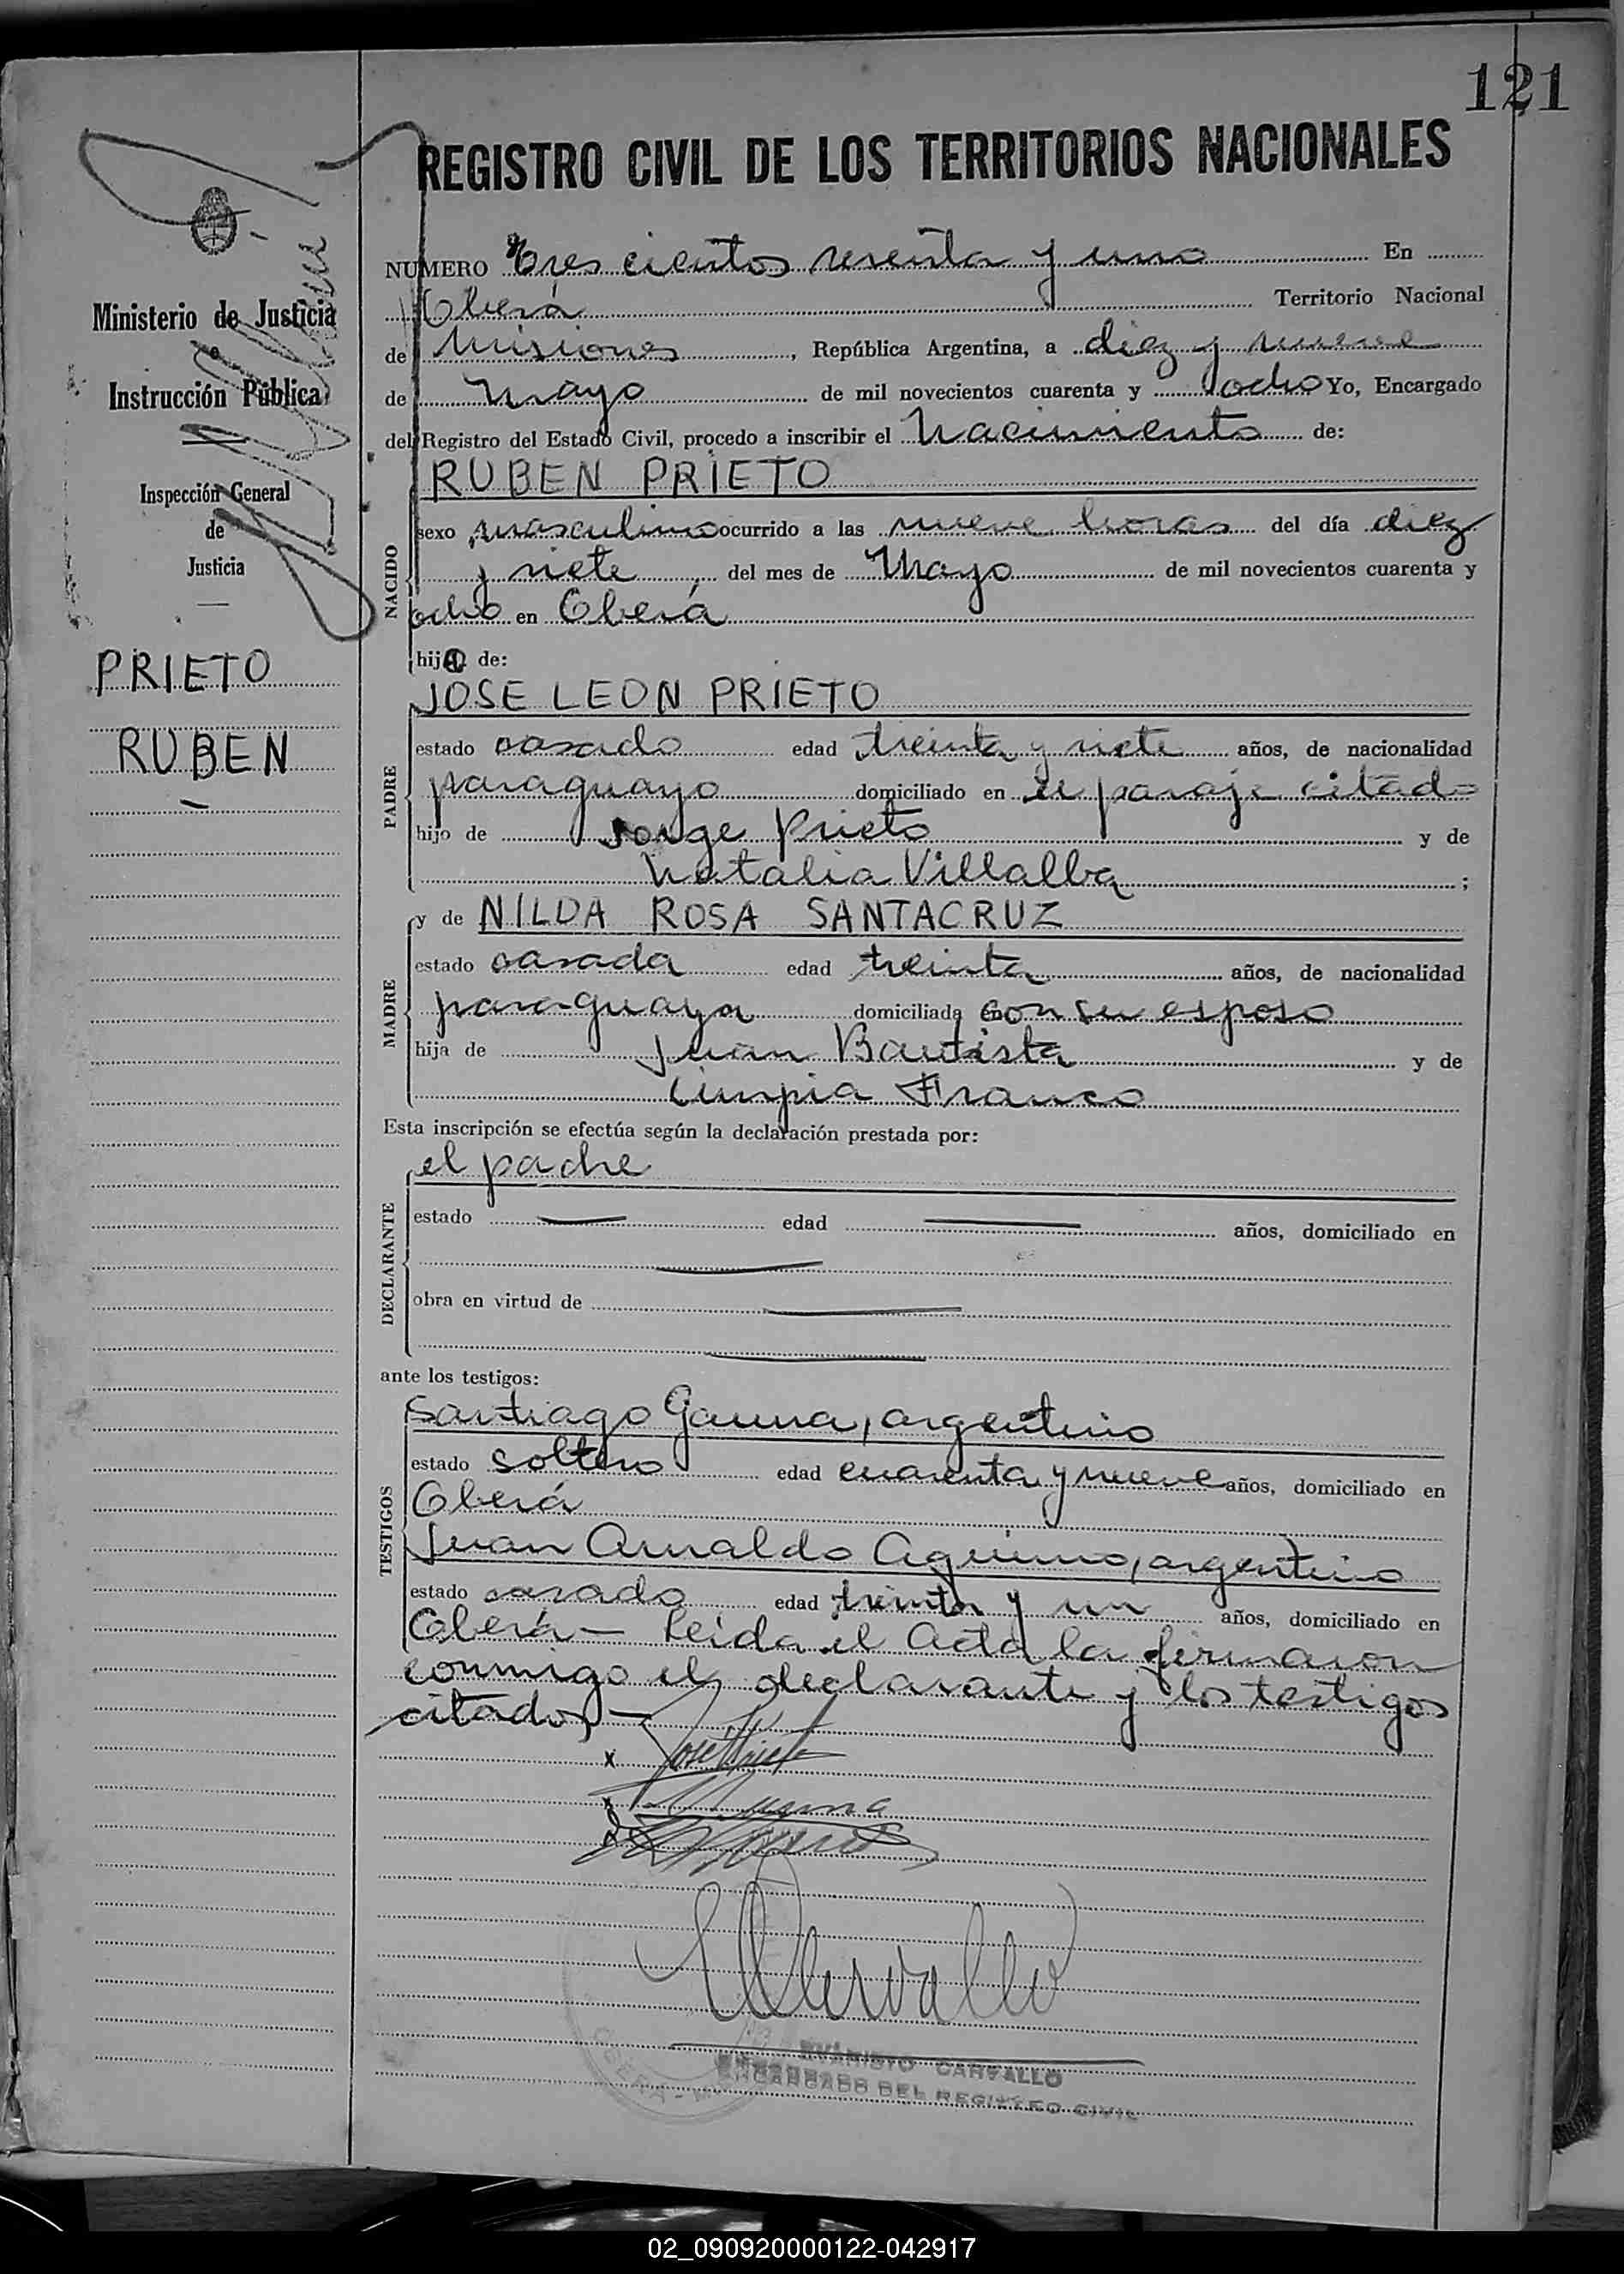 121
REGISTRO CIVIL DE LOS TERRITORIOS NACIONALES
Ministerio de Justicia
e
Instrucción Pública
Inspección General
de
Justicia
PRIETO
RUBEN
NUMERO Tres cientos sesenta y uno En
Oberá Territorio Nacional
de Misiones, República Argentina, a diez y nueve
de Mayo de mil novecientos cuarenta y ocho Yo, Encargado
del Registro del Estado Civil, procedo a inscribir el Nacimiento de:
NACIDO
RUBEN PRIETO
sexo masculino ocurrido a las nueve horas del día diez
y siete, del mes de Mayo de mil novecientos cuarenta y
ocho en Oberá
hijo de:
PADRE
JOSE LEON PRIETO
estado casado edad treinta y siete años, de nacionalidad
paraguayo domiciliado en el paraje citado
hijo de Jorge Prieto y de
Natalia Villalba;
MADRE
y de NILDA ROSA SANTACRUZ
estado casada edad treinta años, de nacionalidad
paraguaya domiciliada con su esposo
hija de Juan Bautista y de
Limpia Franco
Esta inscripción se efectúa según la declaración prestada por:
DECLARANTE
el padre
estado — edad — años, domiciliado en
—
obra en virtud de —
—
ante los testigos:
TESTIGOS
Santiago Gauna, argentino
estado soltero edad cuarenta y nueve años, domiciliado en
Oberá
Juan Arnaldo Aquino, argentino
estado casado edad treinta y un años, domiciliado en
Oberá — Leída el Acta la firmaron
conmigo el declarante y los testigos
citados —
x José Prieto
EVARISTO CARVALLO
ENCARGADO DEL REGISTRO CIVIL
02_090920000122-042917